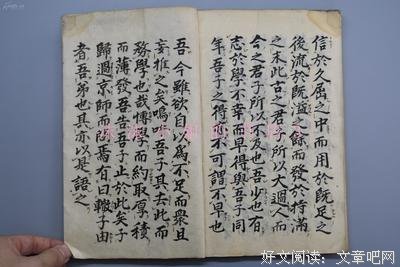 信於久屈之中而用於既足之
後流於既溢之餘而發於持滿
之末此古之君子所以大過人而
今之君子所以不及也吾少也有
志於學不幸而早得與吾子同
年吾子之得亦不可謂不早也
吾今雖欲自以為不足而衆且
妄推之矣嗚呼吾子其去此而
務學也哉博學而約取厚積
而薄發吾告吾子止於此矣子
歸過京師而問焉有曰轍子由
者吾弟也其亦以是語之
好文阅读：文章吧网